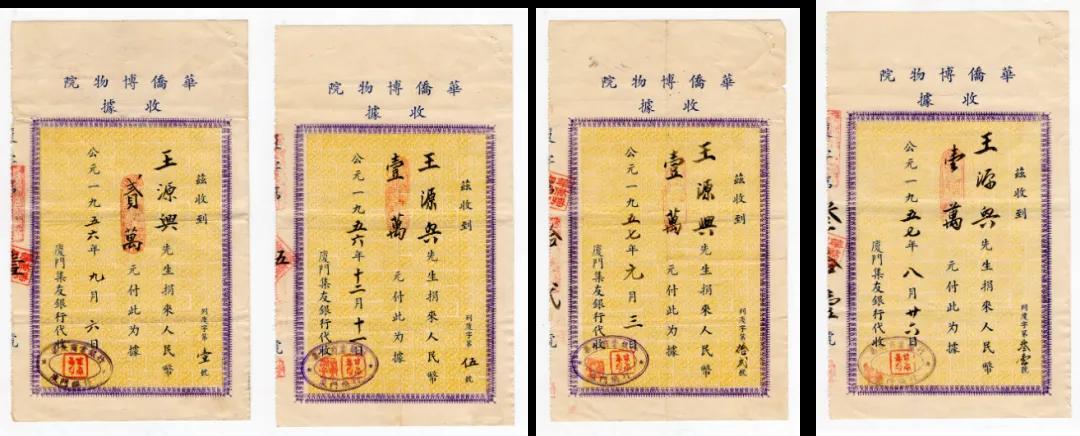 華僑博物院
收據
茲收到
王源興先生捐來人民幣
貳萬元付此为據
公元一九五六年九月六日
廈門集友銀行代收
列廈字第壹號
華僑博物院
收據
茲收到
王源興先生捐來人民幣
壹萬元付此为據
公元一九五六年十二月十一日
廈門集友銀行代收
列廈字第伍號
華僑博物院
收據
茲收到
王源興先生捐來人民幣
壹萬元付此为據
公元一九五七年元月三日
廈門集友銀行代收
列廈字第拾弍號
華僑博物院
收據
茲收到
王源興先生捐來人民幣
壹萬元付此为據
公元一九五七年八月廿六日
廈門集友銀行代收
列廈字第叁壹號